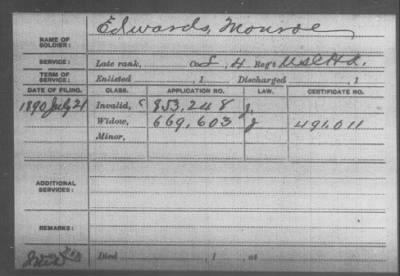 NAME OF SOLDIER: Edwards, Monroe
SERVICE: Late rank, Co. I, 4 Reg't U.S.C.H.A.
TERM OF SERVICE: Enlisted , 1 Discharged , 1
DATE OF FILING. CLASS. APPLICATION NO. LAW. CERTIFICATE NO.
1890 July 21 Invalid, 853,248 J.
Widow, 669,603 J 491,011
Minor,
ADDITIONAL SERVICES:
REMARKS:
Died , 1 at